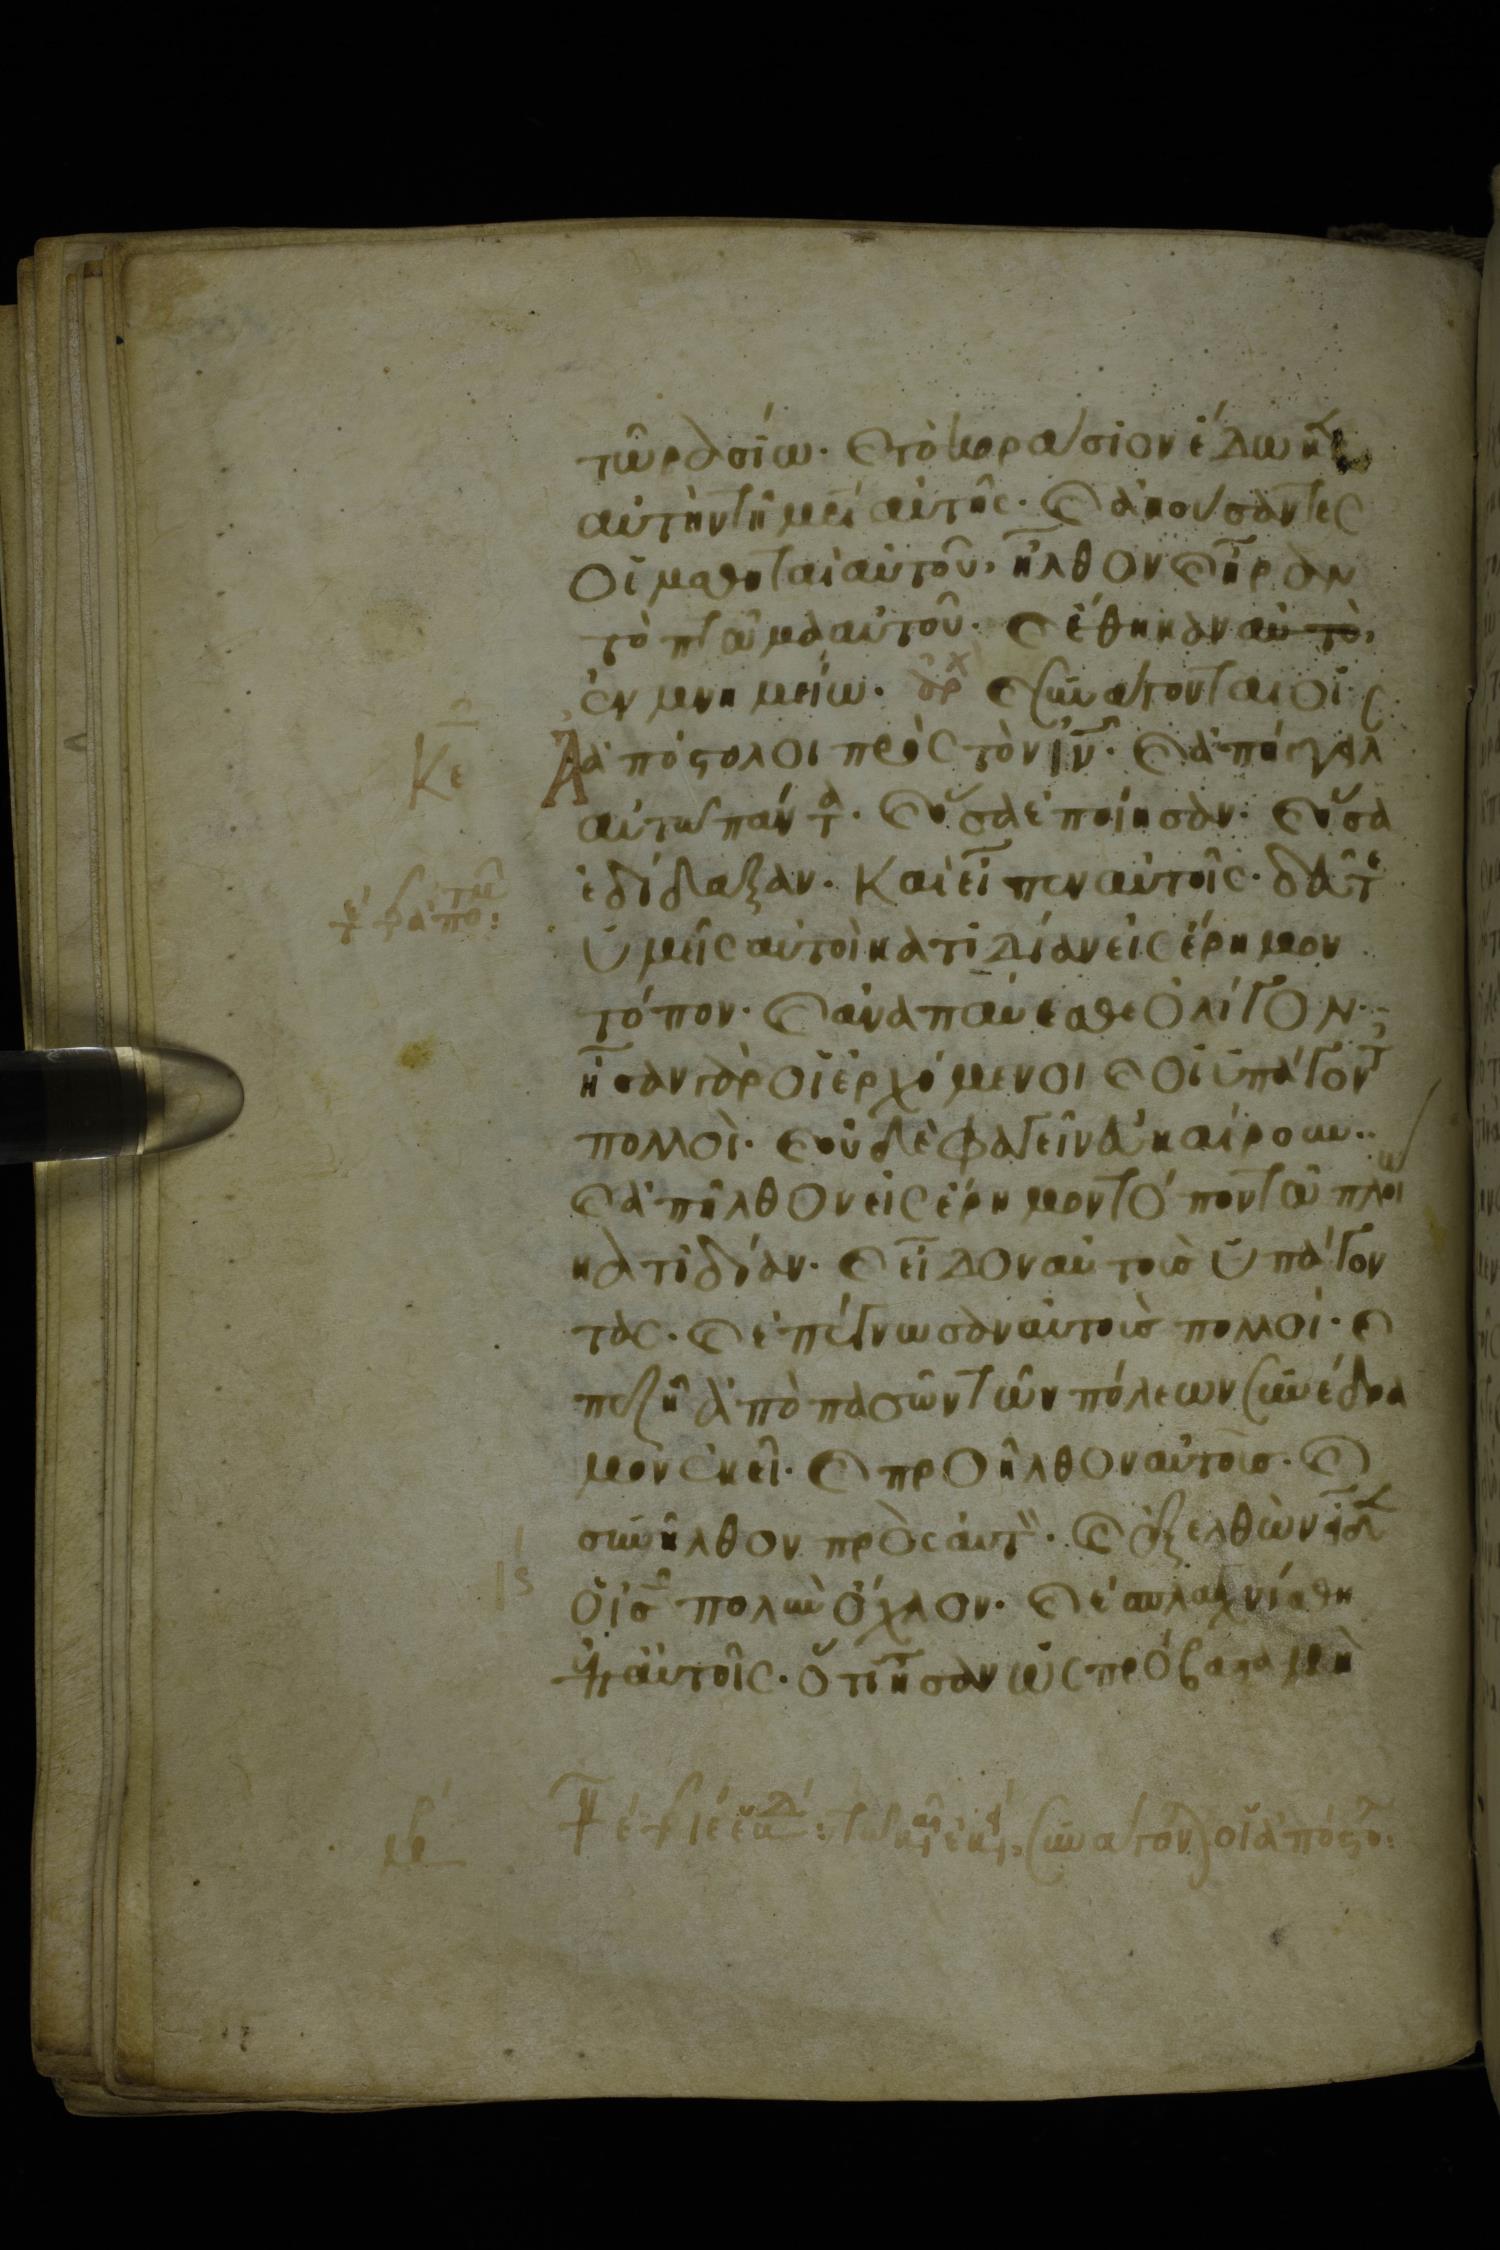 τῶ κορασίω· καὶ τὸ κοράσιον ἔδωκεν
αὐτὴν τῆ μρι αὐτῆς· καὶ ἀκούσαντες
οἱ μαθηταὶ αὐτοῦ, ἦλθον καὶ ἦραν
τὸ πτῶμα αὐτοῦ· καὶ ἔθηκαν αὐτὸ,
ἐν μνημείω· καὶ συνάγονται οἱ
ἀπόστολοι πρὸς τὸν ιν· καὶ ἀπήγγειλ
αὐτῶ πάντα· καὶ ὅσα ἐποίησαν· καὶ ὅσα
ἐδίδαξαν· καὶ εἶπεν αὐτοῖς· δεῦτε
ὑμεῖς αὐτοὶ κατιδίαν εἰς ἔρημον
τόπον· καὶ ἀναπαύεσθε ὀλίγον·
ἦσαν γὰρ οἱ ἐρχόμενοι καὶ οἱ ὑπάγοντ
πολλοὶ· καὶ οὐδὲ φαγεῖν ηὐκαίρουν·
καὶ ἀπῆλθον εἰς ἔρημον τόπον τῶ πλοίω
κατιδίαν· καὶ εἶδον αὐτοὺς ὑπάγον
τας· καὶ ἐπέγνωσαν αὐτοὺς πολλοί· καὶ
πεζῆ ἀπὸ πασῶν τῶν πόλεων συνέδρα
μον ἐκεῖ· καὶ προῆλθον αὐτοὺς· καὶ
συνῆλθον πρὸς αὐτὸν· καὶ ἐξελθὼν εἶδεν
ὁ ις πολὺν ὄχλον· καὶ ἐσπλαγχνίσθη
ἐπ αὐτοῖς· ὅτι ἦσαν ὡς πρόβατα μὴ